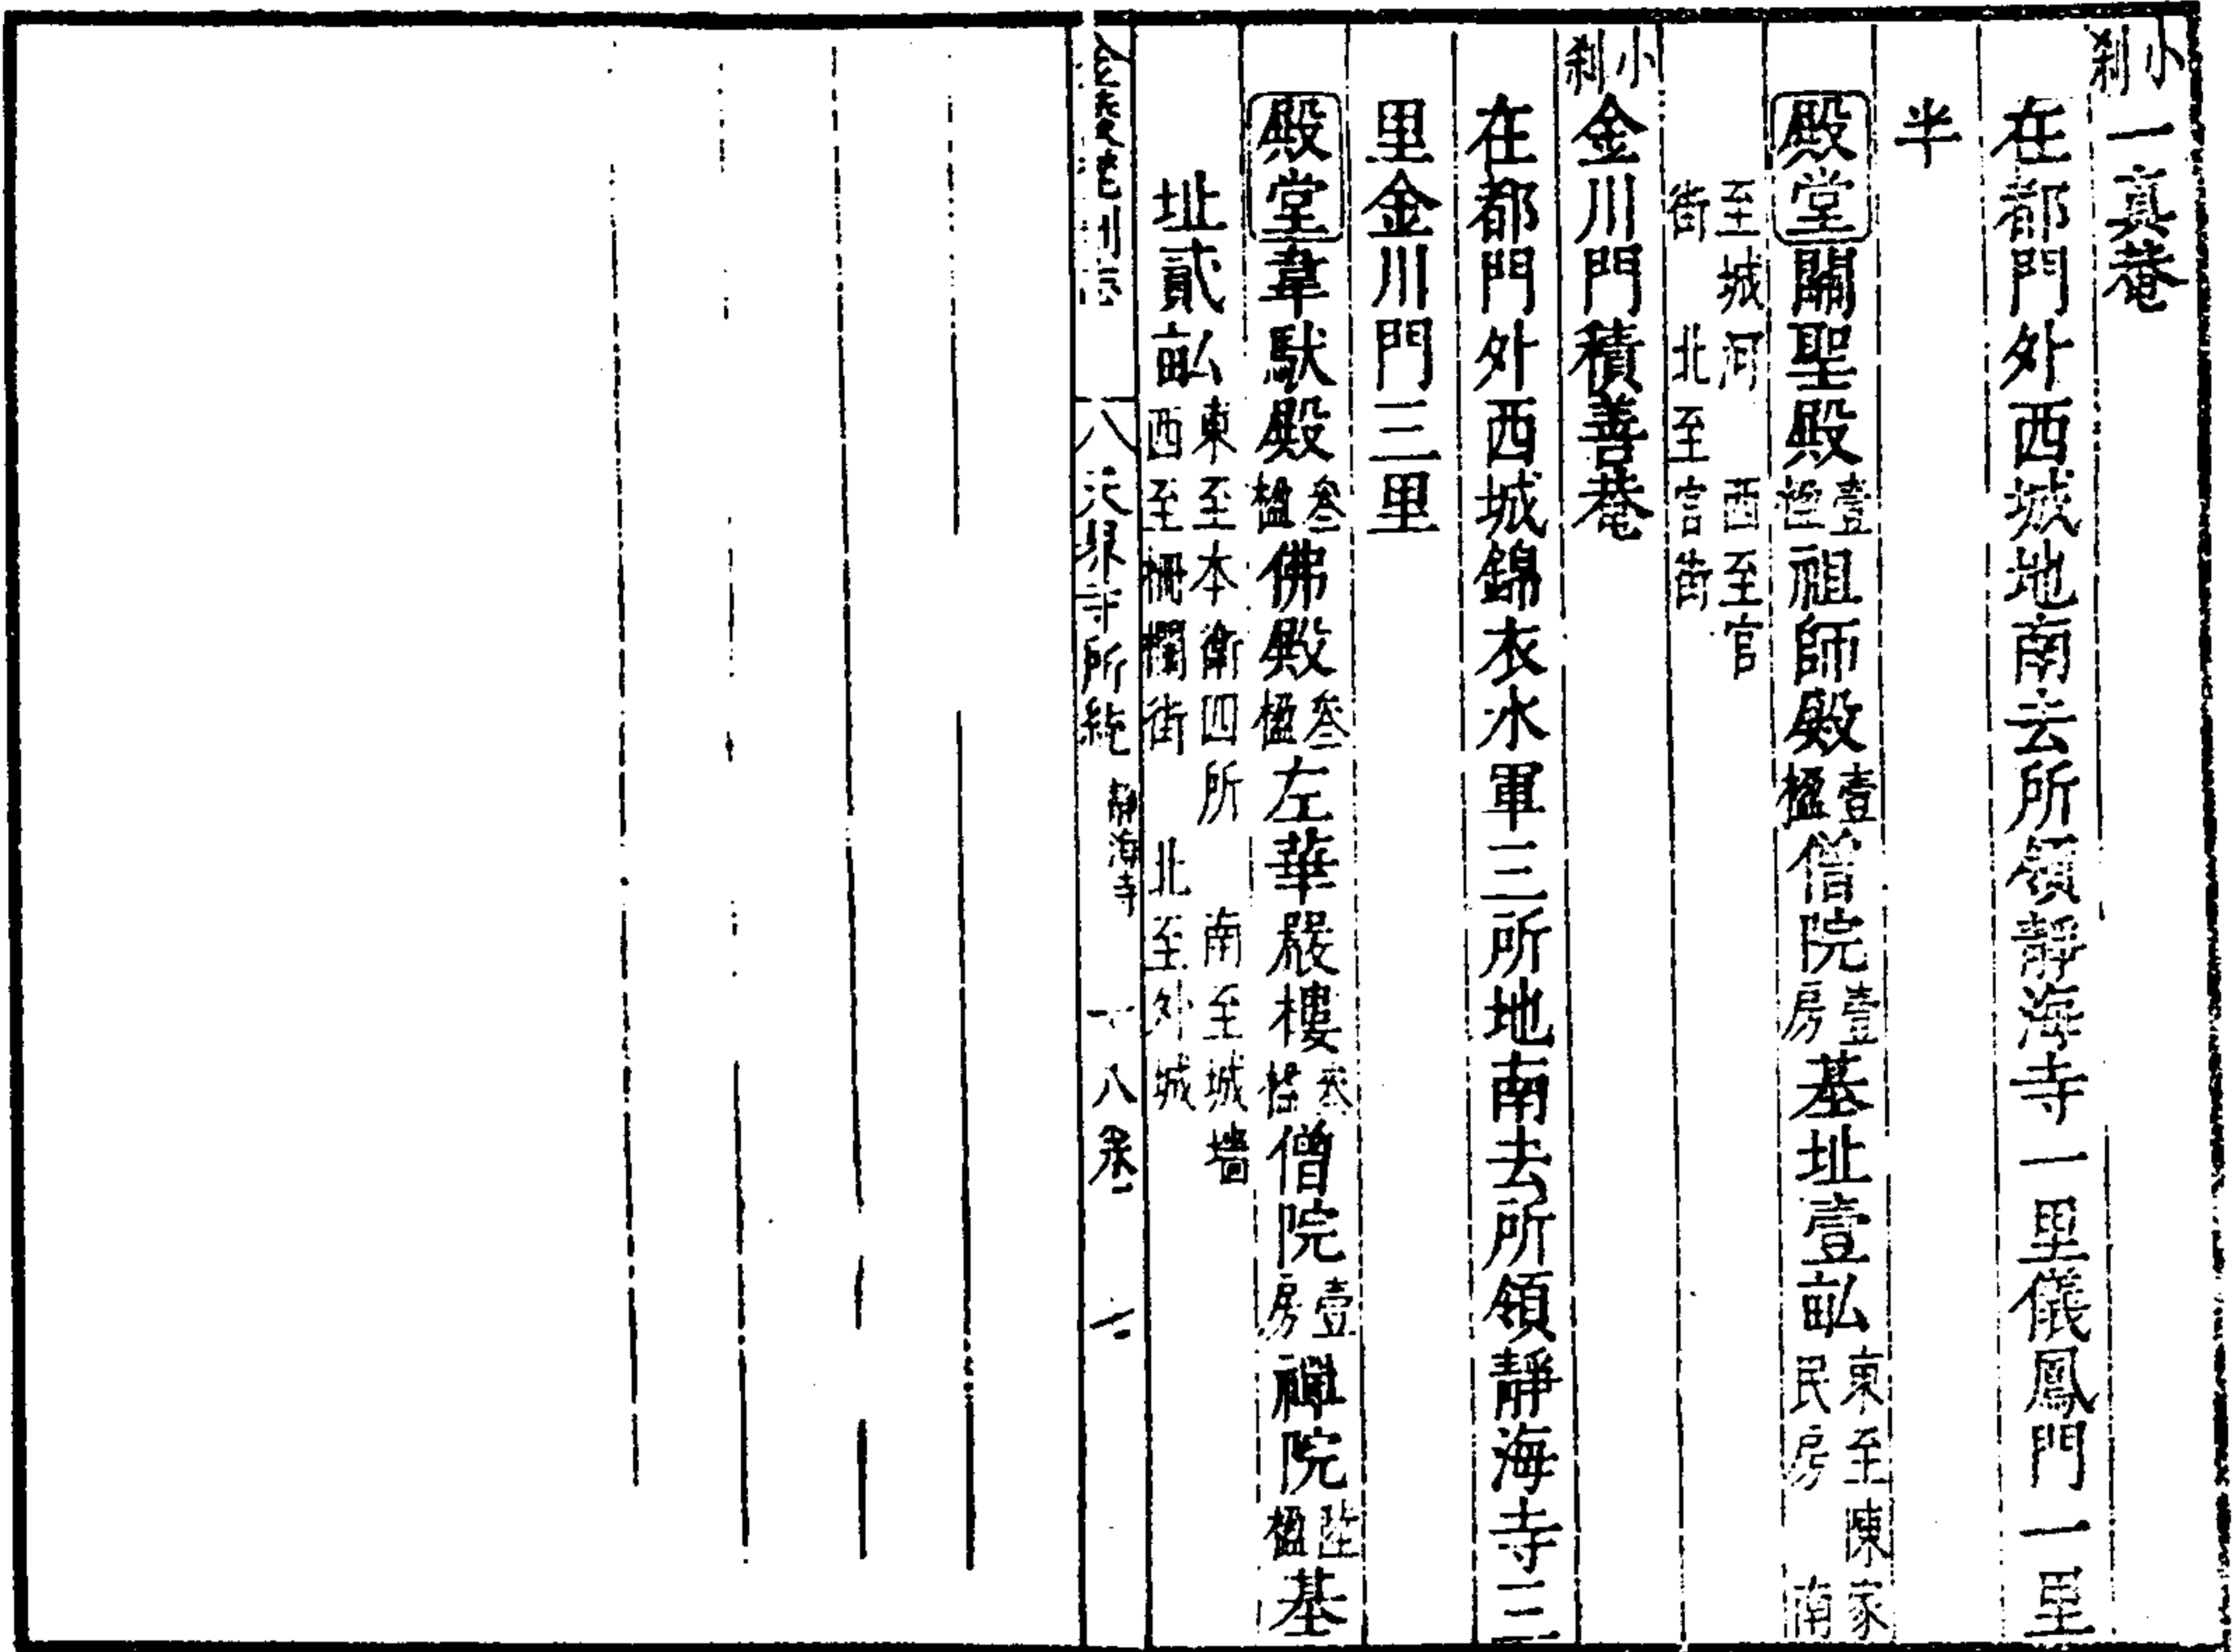 小刹一真菴
在都門外西城地南去所領靜海寺一里儀鳳門一里
半
殿堂關聖殿壹楹祖師殿壹楹僧院壹房基址壹畆東至陳家民房　南
至城河　西至官街　北至官街
小刹金川門積善菴
在都門外西城錦衣水軍三所地南去所領靜海寺三
里金川門三里
殿堂韋馱殿叁楹佛殿叁楹左華嚴樓叁楹僧院壹房禪院陸楹基
址貳畆東至本衛四所　南至城墻西至柵欄街　北至外城
金陵梵刹志　八　天界寺所統　靜海寺　十八卷